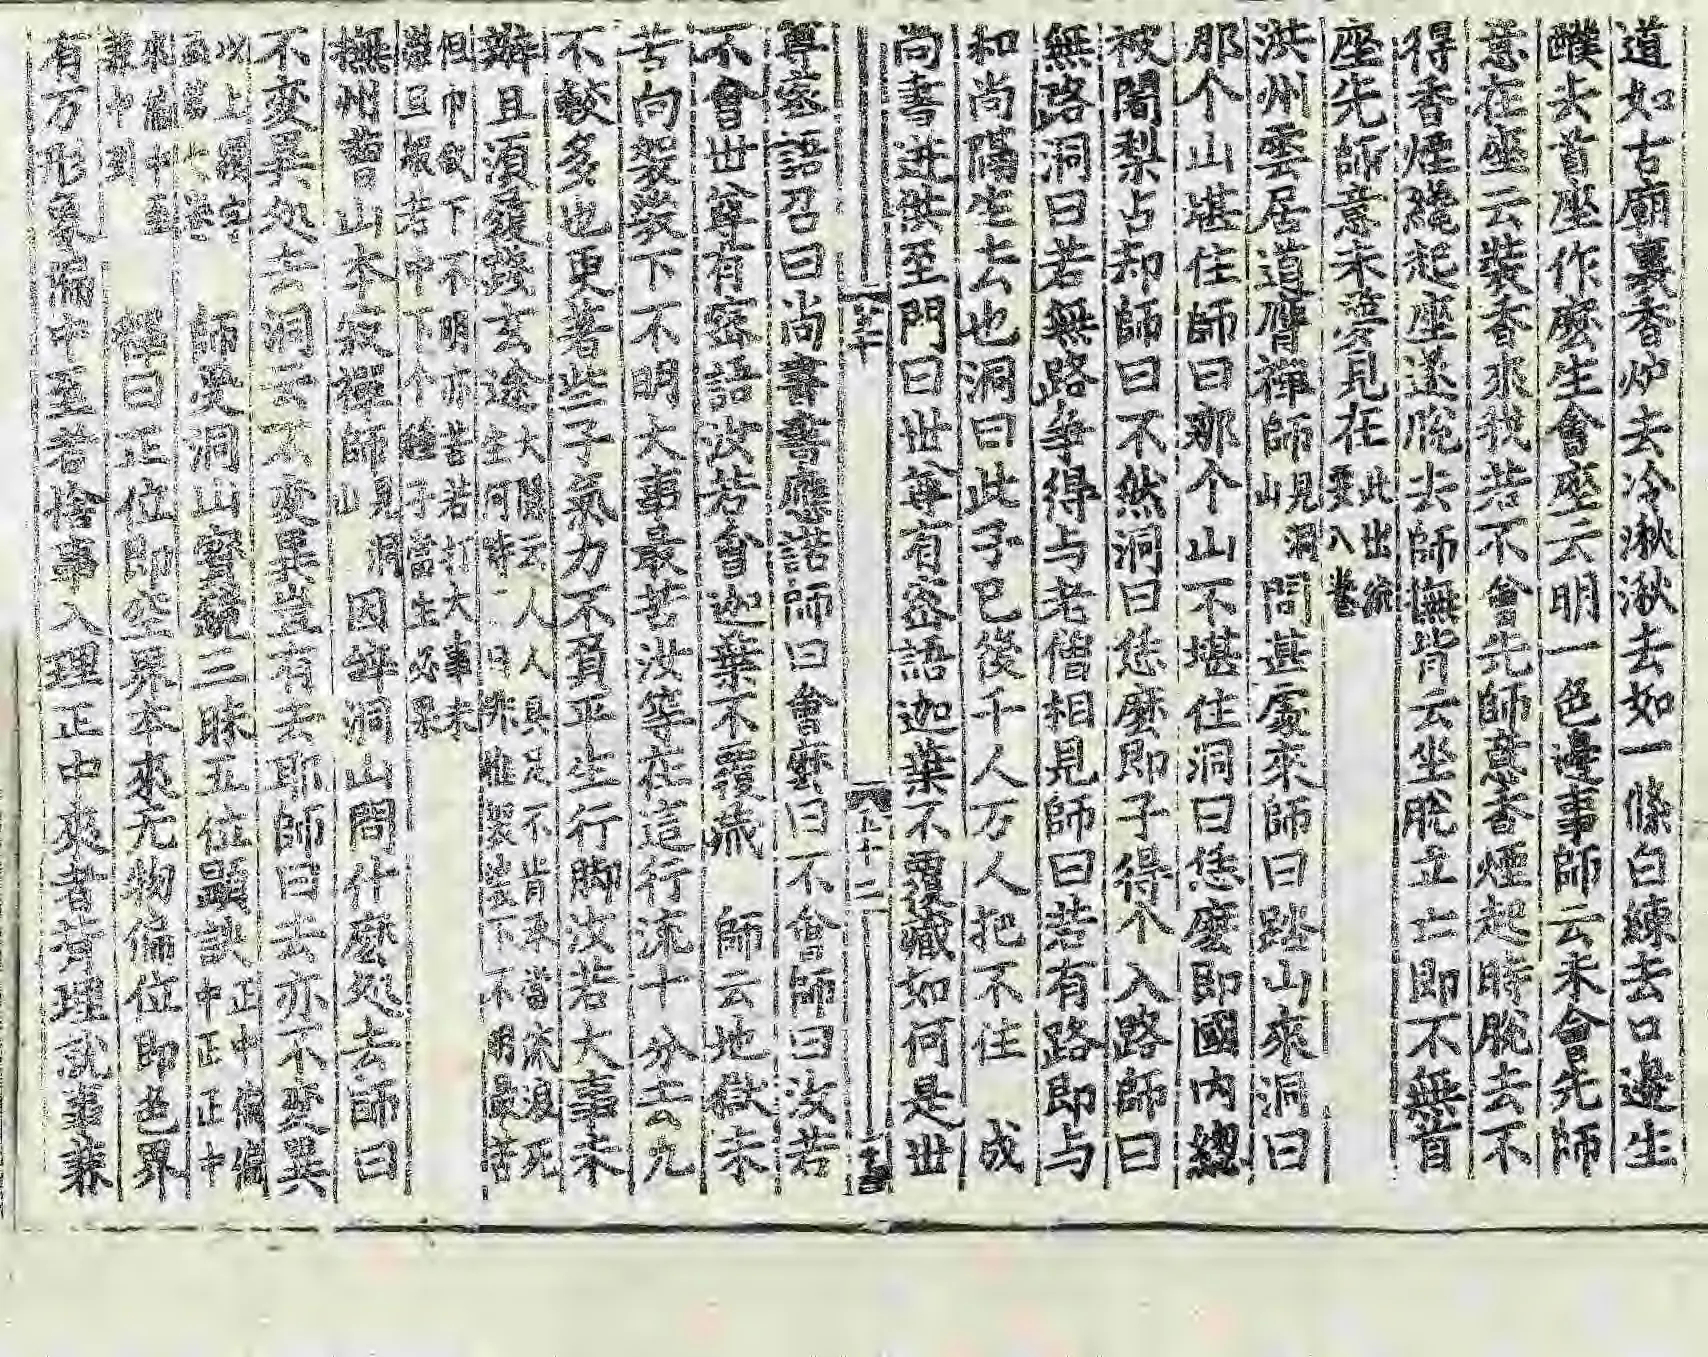 道如古廟裏香炉去冷湫湫去如一條白練去口邊生
醭去首座作麽生會座云明一色邊事師云未會先師
意在座云裝香來我若不會先師意香煙起時脫去不
得香煙纔起座遂脫去師撫背云坐脫立亡即不無首
座先師意未夢見在此出流 要八卷
洪州雲居道膺禪師見洞山 問甚處來師曰踏山來洞曰
那个山堪住師曰那个山不堪住洞曰恁麽即國內總
被闍梨占却師曰不然洞曰恁麽即子得个入路師曰
無路洞曰若無路爭得与老僧相見師曰若有路即与
和尚隔生去也洞曰此子已後千人万人把不住 成
尚書送供至門曰世尊有密語迦葉不覆藏如何是世
尊密語召曰尚書書應諾師曰會麽曰不會師曰汝若
不會世尊有密語汝若會迦葉不覆藏 師云地獄未
苦向袈裟下不明大事最苦汝等在這行流十分去九
不較多也更著些子氣力不負平生行脚汝若大事未
辦且須履踐玄途大隨云人人具足不肯承當流浪死 生何時 一日 披袈裟下不明最苦
但巾 下不明亦苦若打大事未 難且 苦中下个種子當生必果
撫州曹山本寂禪師見洞山 因辞洞山問什麽処去師曰
不變異処去洞云不變異豈有去耶師曰去亦不變異
師受洞山寶鏡三昧五位顯訣正中偏偏 中正正中
來偏中至 兼中到 釋曰正位即空界本來无物偏位即色界
有万形象偏中至者捨事入理正中來者背理就事兼